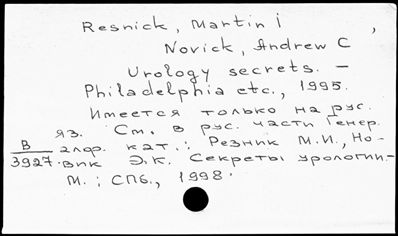 Resnick, Martin i ,
Novick, Andrew C
Urology secrets. –
Philadelphia etc., 1995.
Имеется только на рус.
яз. См. в рус. части Генер.
В алф. кат.: Резник М.И., Но-
3927 вик Э.К. Секреты урологии.–
М.; СПб., 1998.